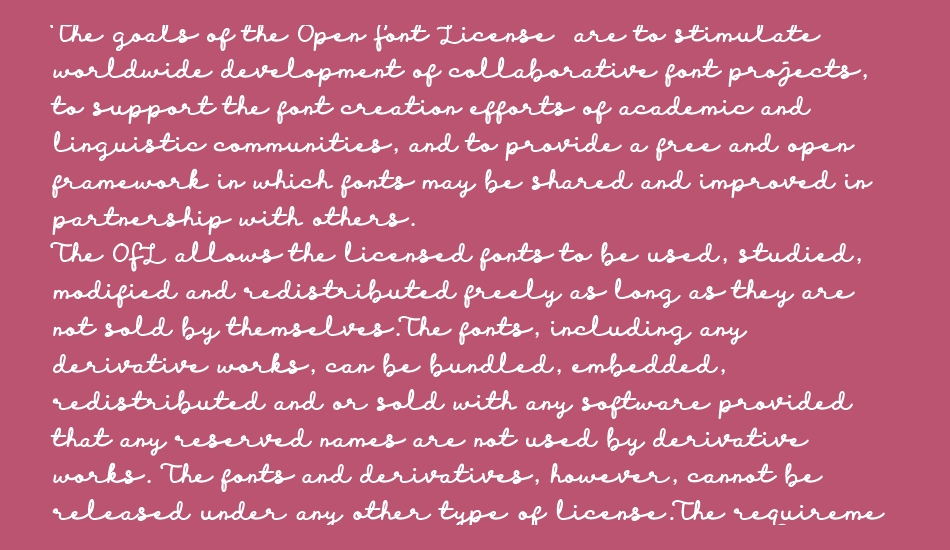 The goals of the Open Font License are to stimulate
worldwide development of collaborative font projects,
to support the font creation efforts of academic and
linguistic communities, and to provide a free and open
framework in which fonts may be shared and improved in
partnership with others.
The OFL allows the licensed fonts to be used, studied,
modified and redistributed freely as long as they are
not sold by themselves.The fonts, including any
derivative works, can be bundled, embedded,
redistributed and or sold with any software provided
that any reserved names are not used by derivative
works. The fonts and derivatives, however, cannot be
released under any other type of license.The requireme